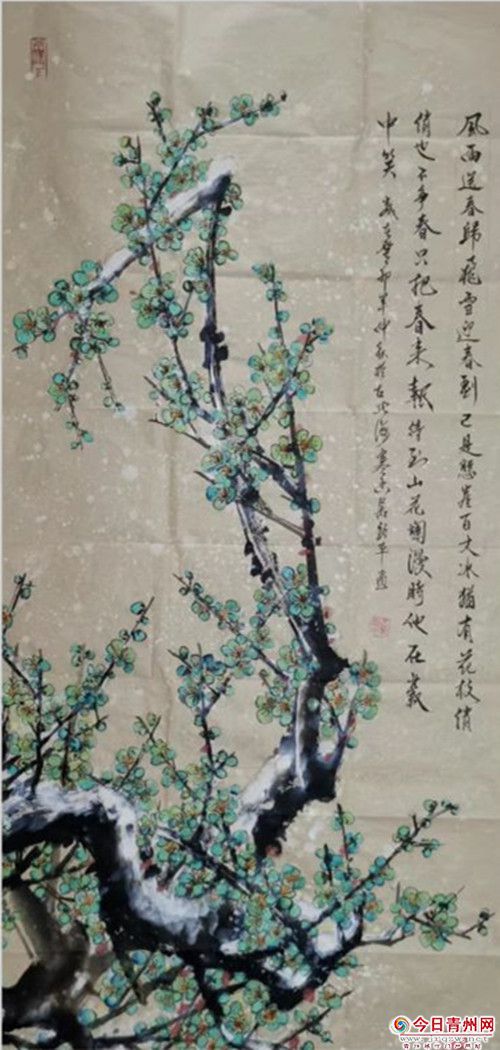 風雨送春歸飛雪迎春到已是懸崖百丈冰猶有花枝俏
俏也不争春只把春来報待到山花爛漫時他在叢
中笑 歲在癸卯年仲
今日青州网